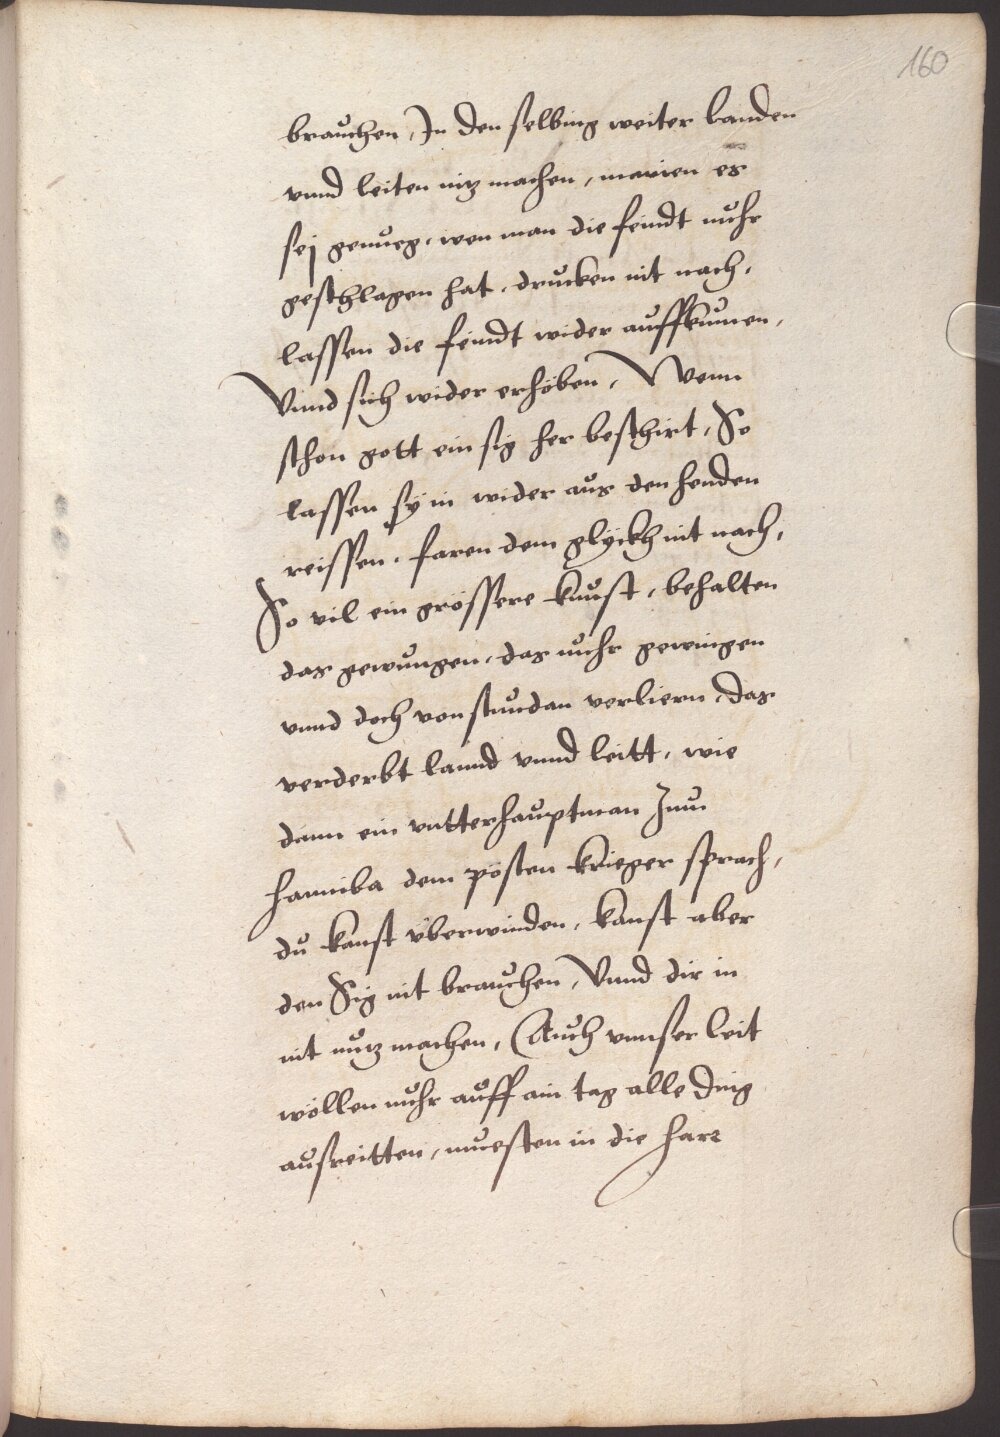 160
brauchen, In den selbing weiter landen
vnnd leiten nitz machen, mainen es
sej genueg, wen man die feindt nuhr
geschlagen hat, drucken nit nach,
lassen die feindt wider auffkumen,
Vnnd sich wider erhöben, Wenn
schon gott ein sig her beschirt, So
lassen sÿ in wider aus den henden
reissen, faren dem glÿckh nit nach,
So vil ein grössere kunst, behalten
das gewungen, das nuhr gewingen
vnnd doch von stundan verliern, das
verderbt lannd vnnd leitt, wie
dann ein vntterhauptman Zum
hanniba dem pösten krieger sprach,
du kanst überwinden, kanst aber
den Sig nit brauchen, Vnnd dir in
nit nutz machen, (Auch vnnser leit
wöllen nuhr auff ain tag alle ding
ausreitten, muesten in die harr